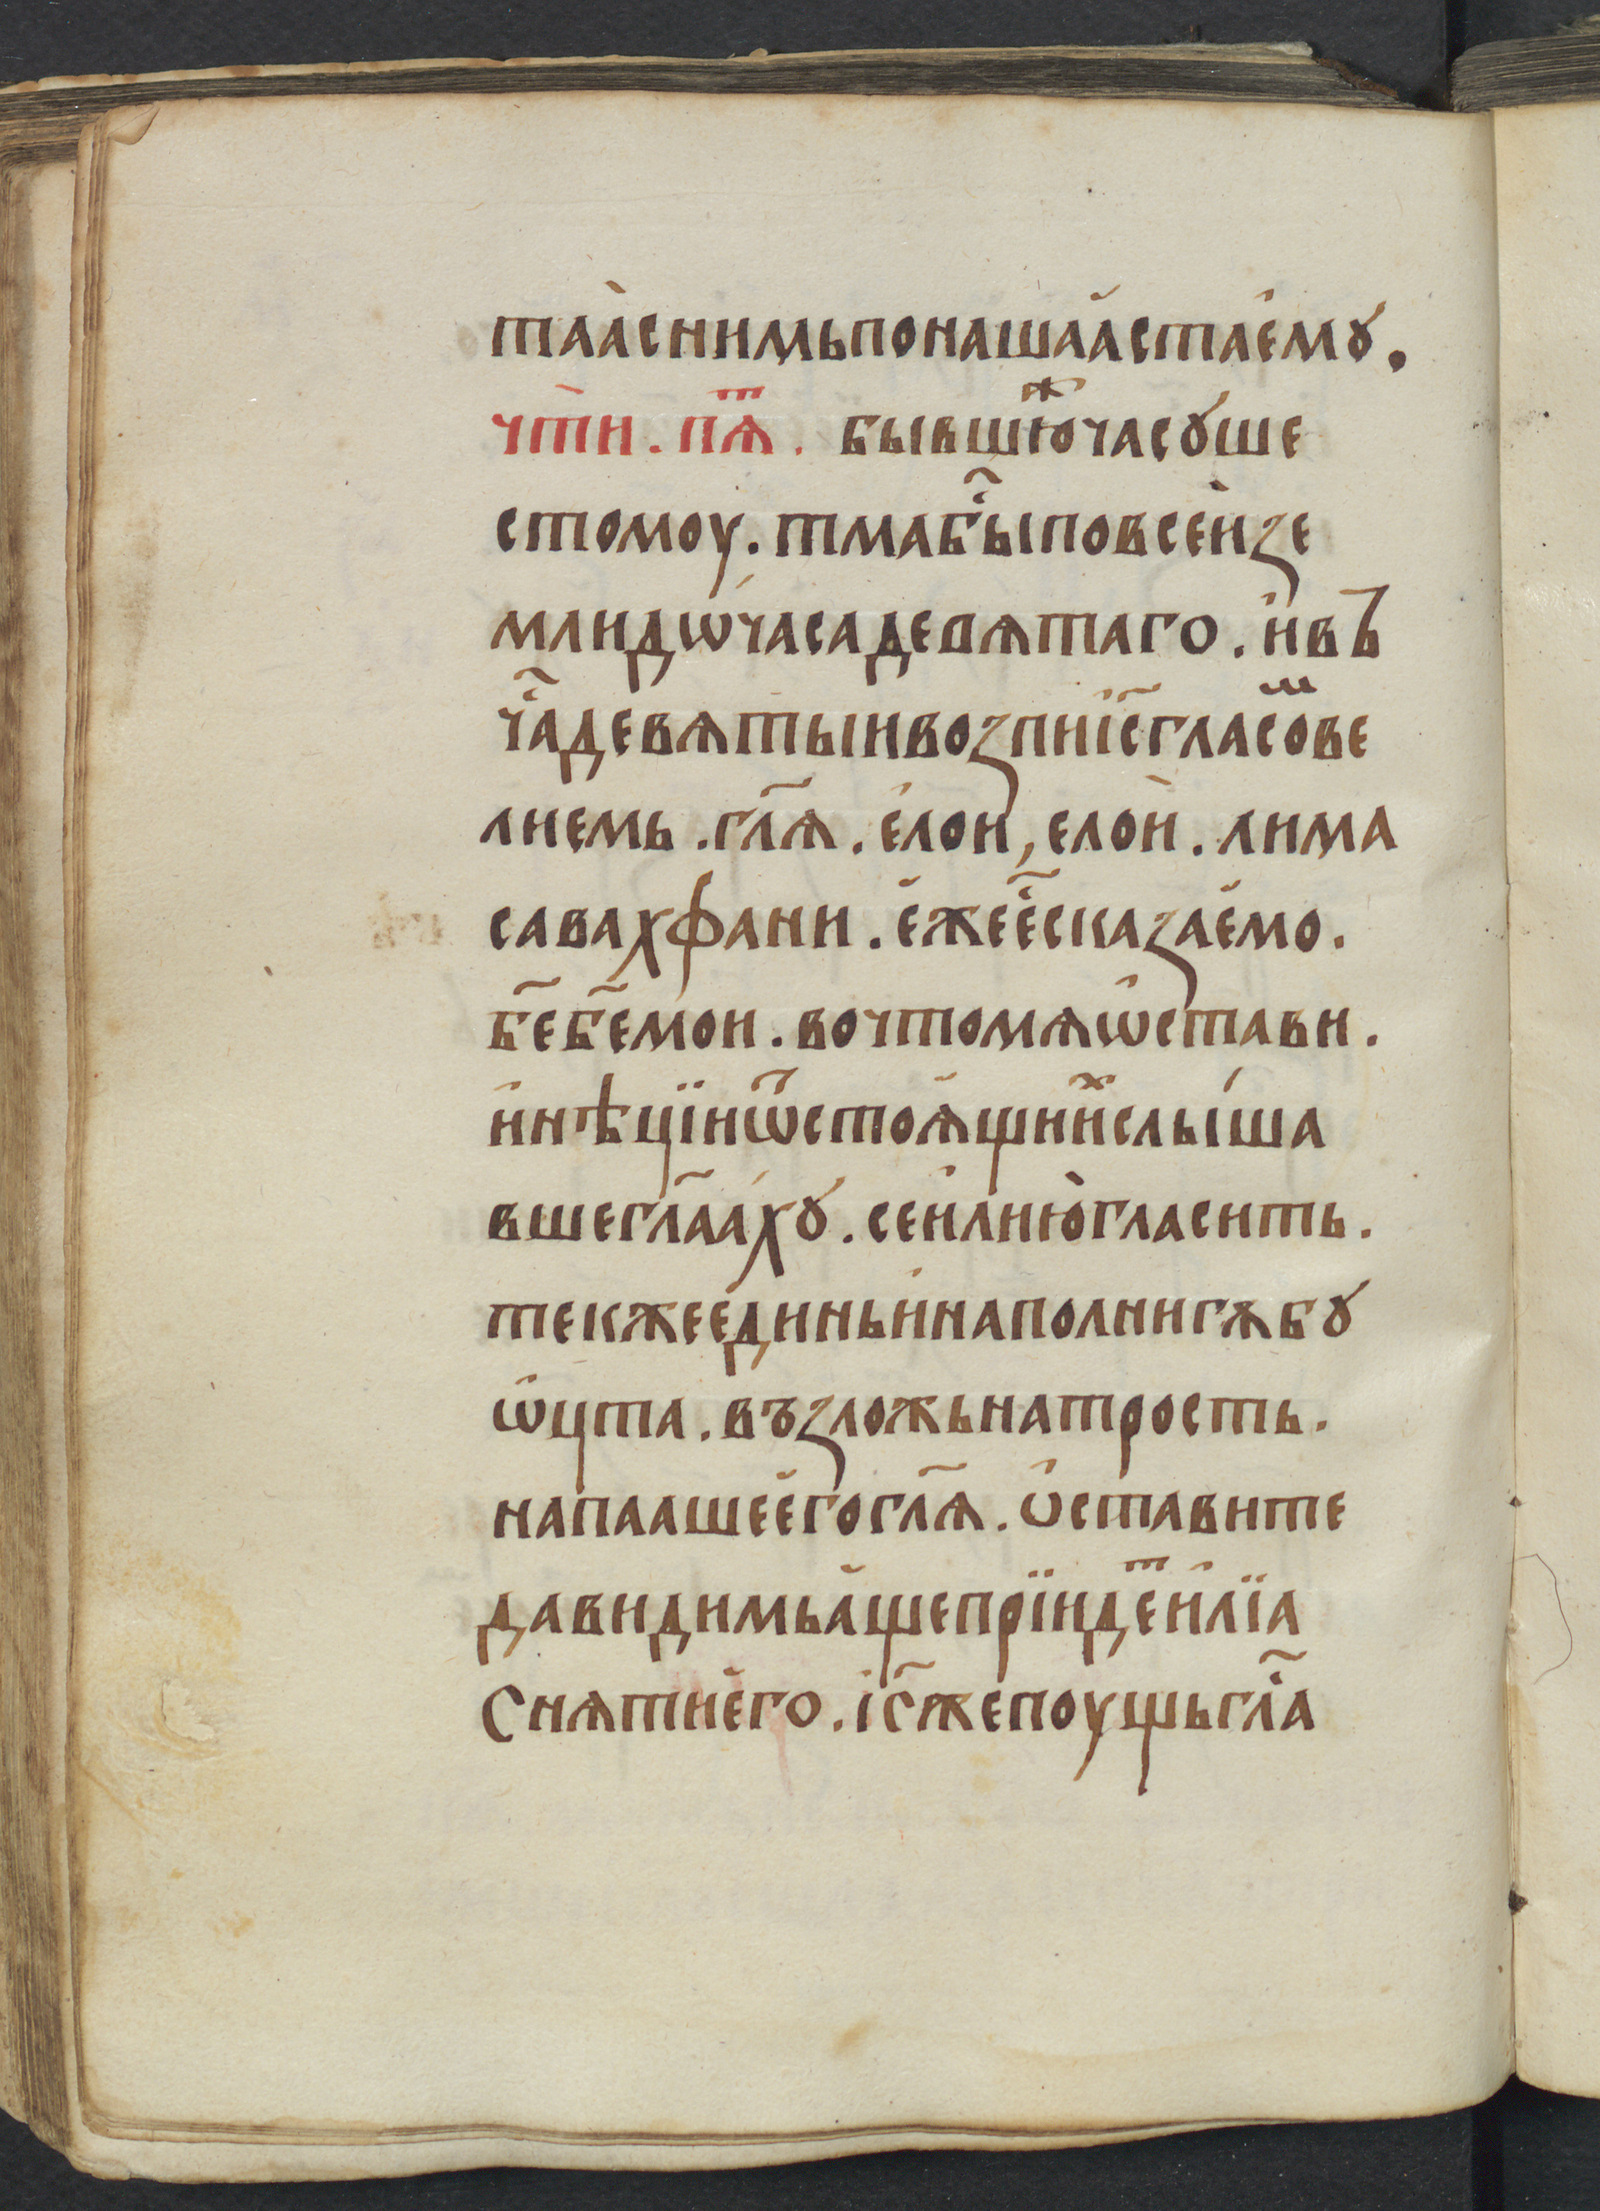 таа̀снимьпонашаа̑стае̑мꙋ.
чт̀и. пѧⷮ. бывшюⷤчасꙋше
стомоу. тмабы̑повсеи̑зе
млидѡ́часадевѧтаго. и̑въ
ча̑девѧтыивозпиі҃сгласоⷨве
лиемь. гл҃ѧ. е̑лои, елои̑. лима
савахфани. е̑жее̑сказае̑мо.
бе҃бе҃мои. вочтомѧѡ̑стави.
и̑нѣцїиѿстоꙗ̑щииⷯслы́ша
вшегл҃аа́хꙋ. сеи̑лию̀гласить.
текжее̑диньи̑наполнигѫбꙋ
ѡ̑цта. възложьнатрость.
напаашее̑гогл҃ѧ. ѡ̑ставите
давидимьа̑щепрїидеⷮи̑лїа
снѧтие̑го. іс҃жепоущьгл҃а